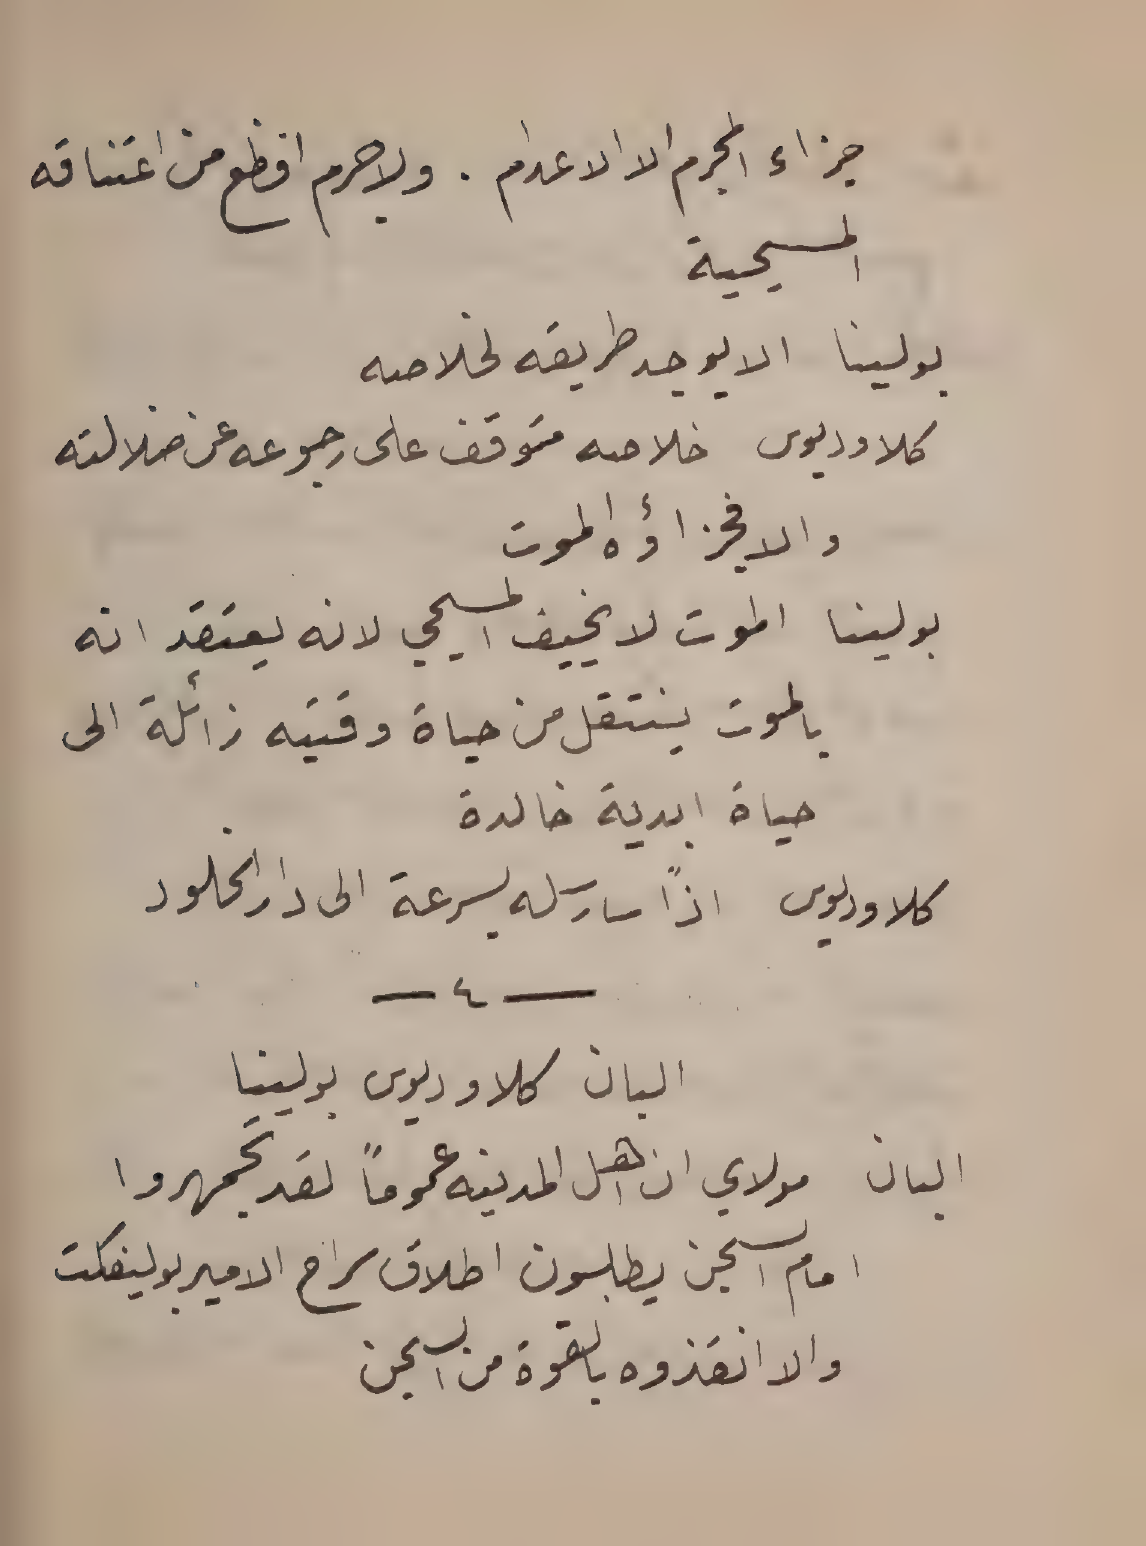 جزاء المجرم الا الاعدام . ولا جرم افظع من اعتناقه
المسيحية
بولينا الا يوجد طريقه لخلاصه
كلاوديوس خلاصه متوقف على رجوعه عن ضلالته
والا فجزاؤه الموت
بولينا الموت لا يخيف المسيحي لانه يعتقد انه
بالموت ينتقل من حياة وقتيه زائلة الى
حياة ابدية خالدة
كلاوديوس اذاً سارسله بسرعة الى دار الخلود
— ٤ —
البان كلاوديوس بولينا
البان مولاي ان اهل المدينه عموماً لقد تجمهروا
امام السجن يطلبون اطلاق سراح الامير بولينكت
والا انقذوه بالقوة من السجن